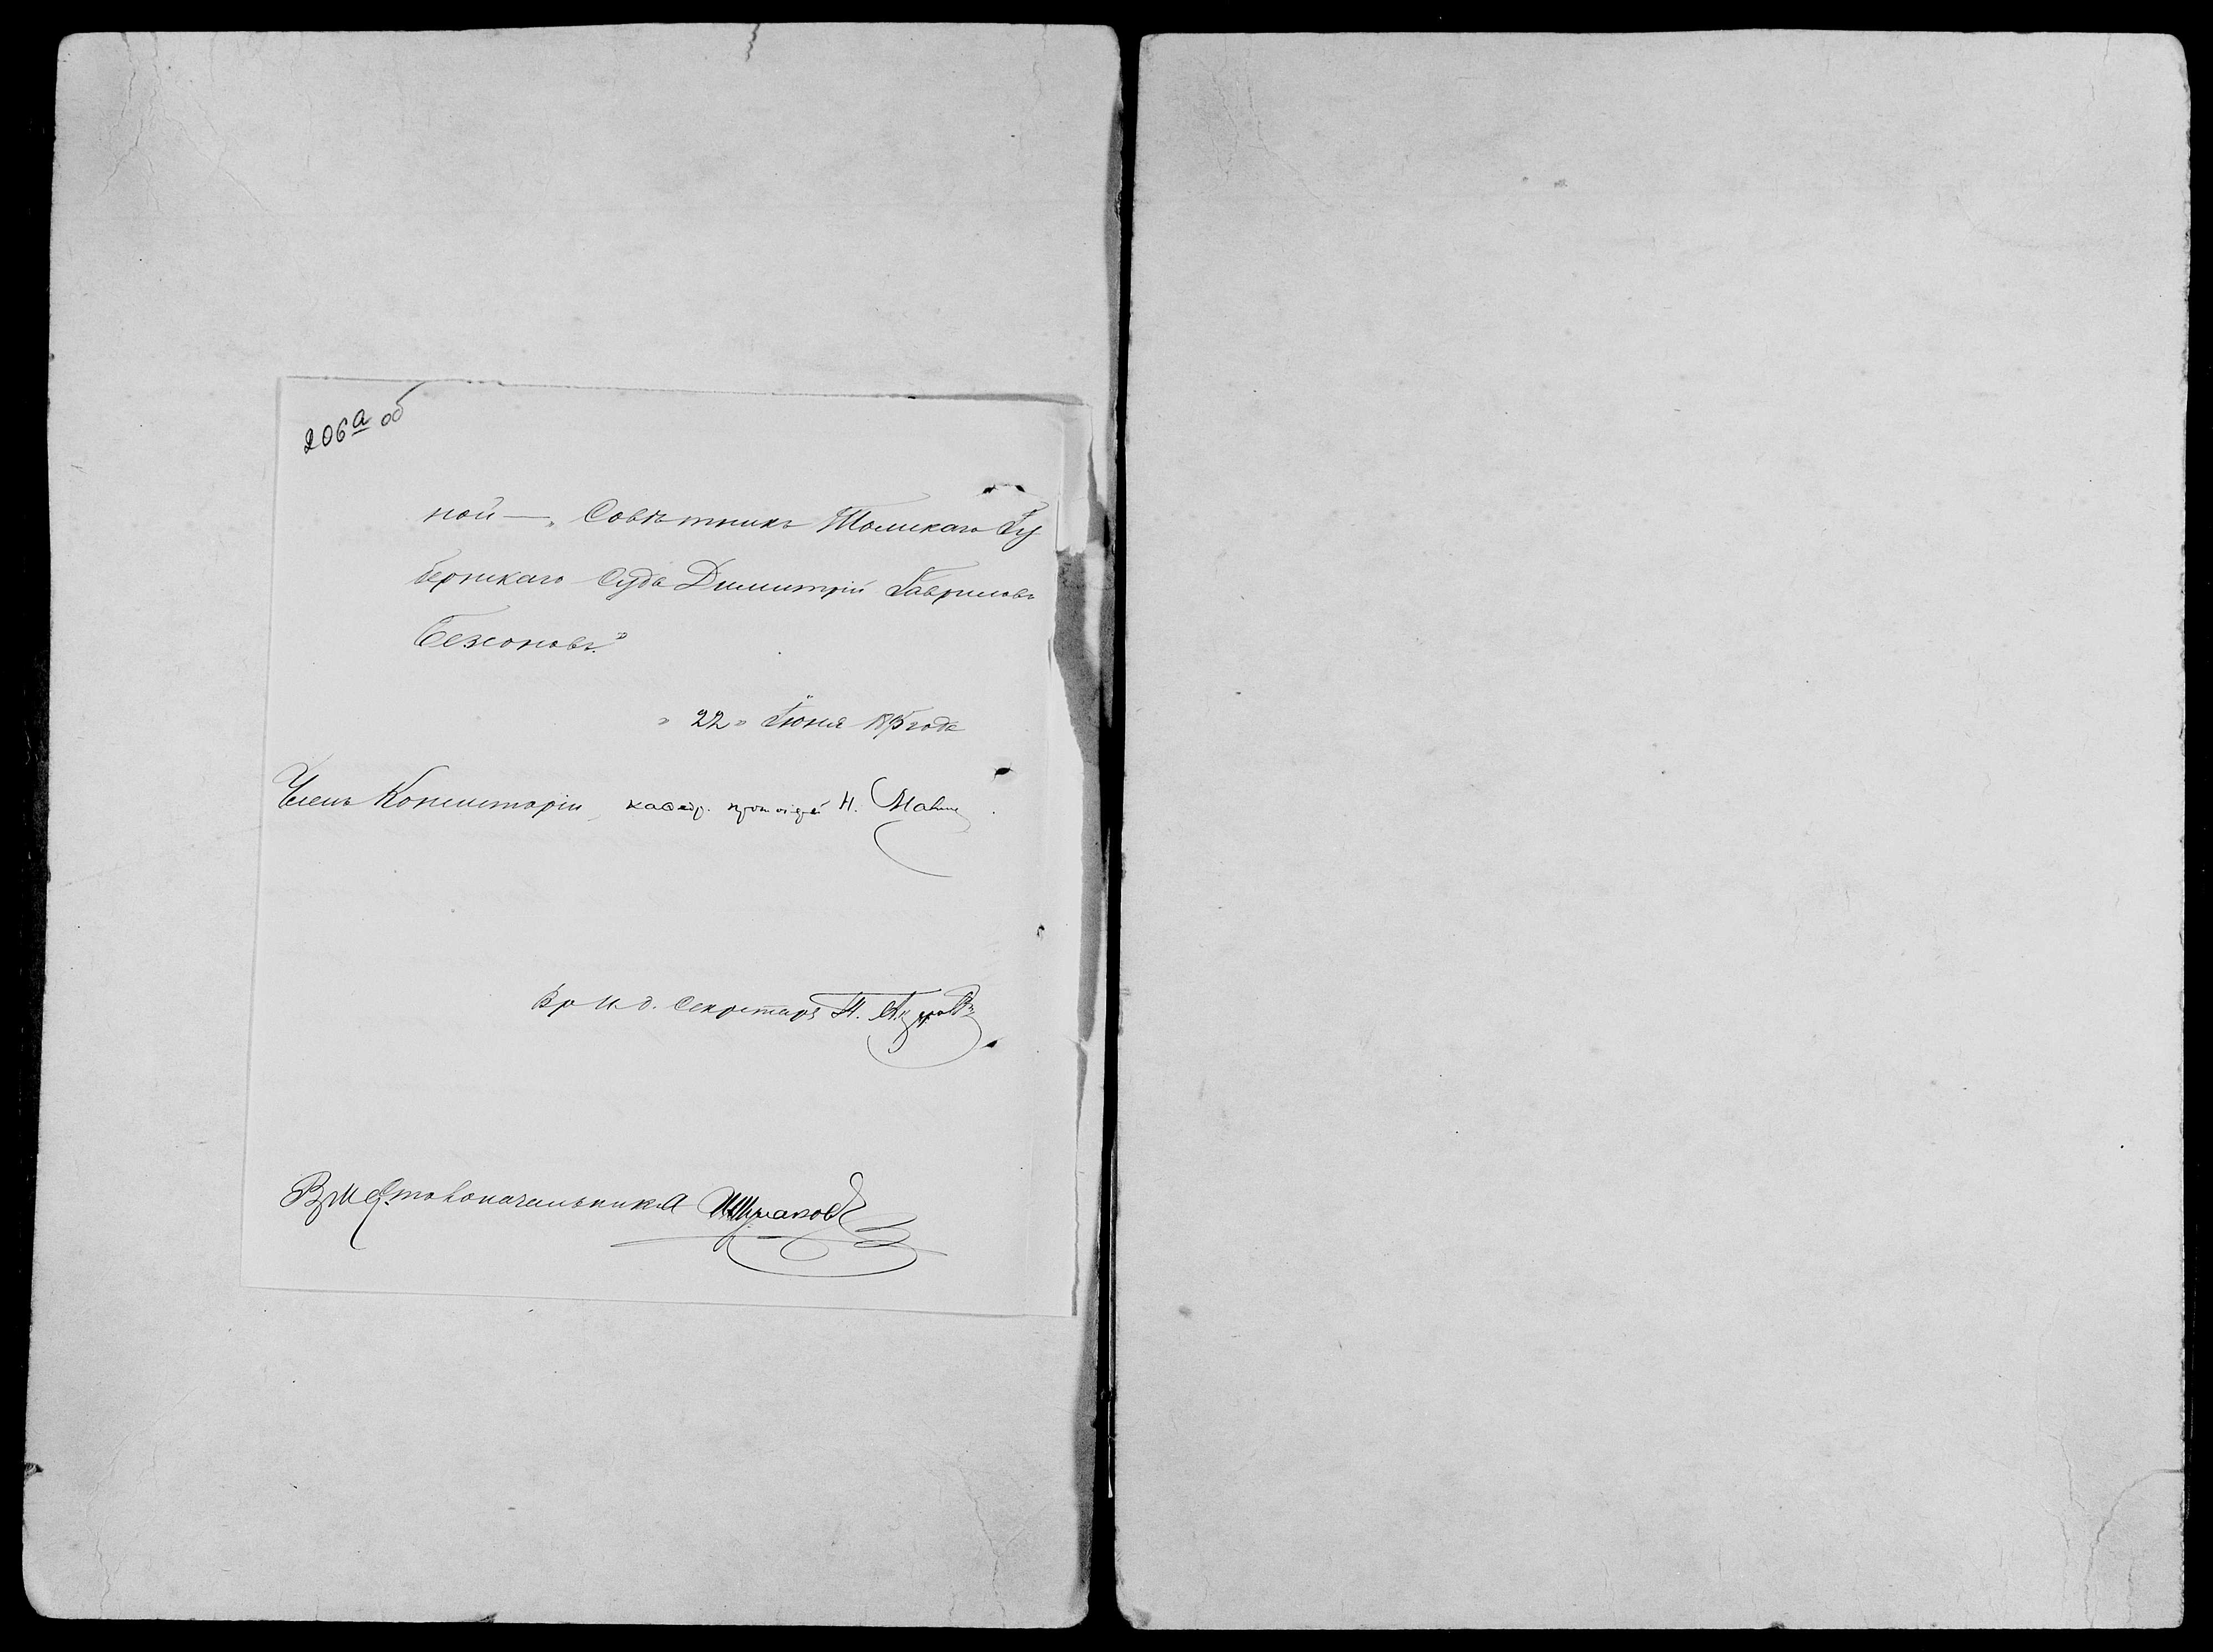 206а об
ной — „Совѣтникъ Томскаго Гу
бернскаго Суда Димитрій Гавриловъ
Бежоновъ."
" 22 " Іюня 1895 года
Членъ Консисторіи, каѳедр. протоіерей Н.
Вр и д. Секретаря П.
Вр и д. Столоначальника